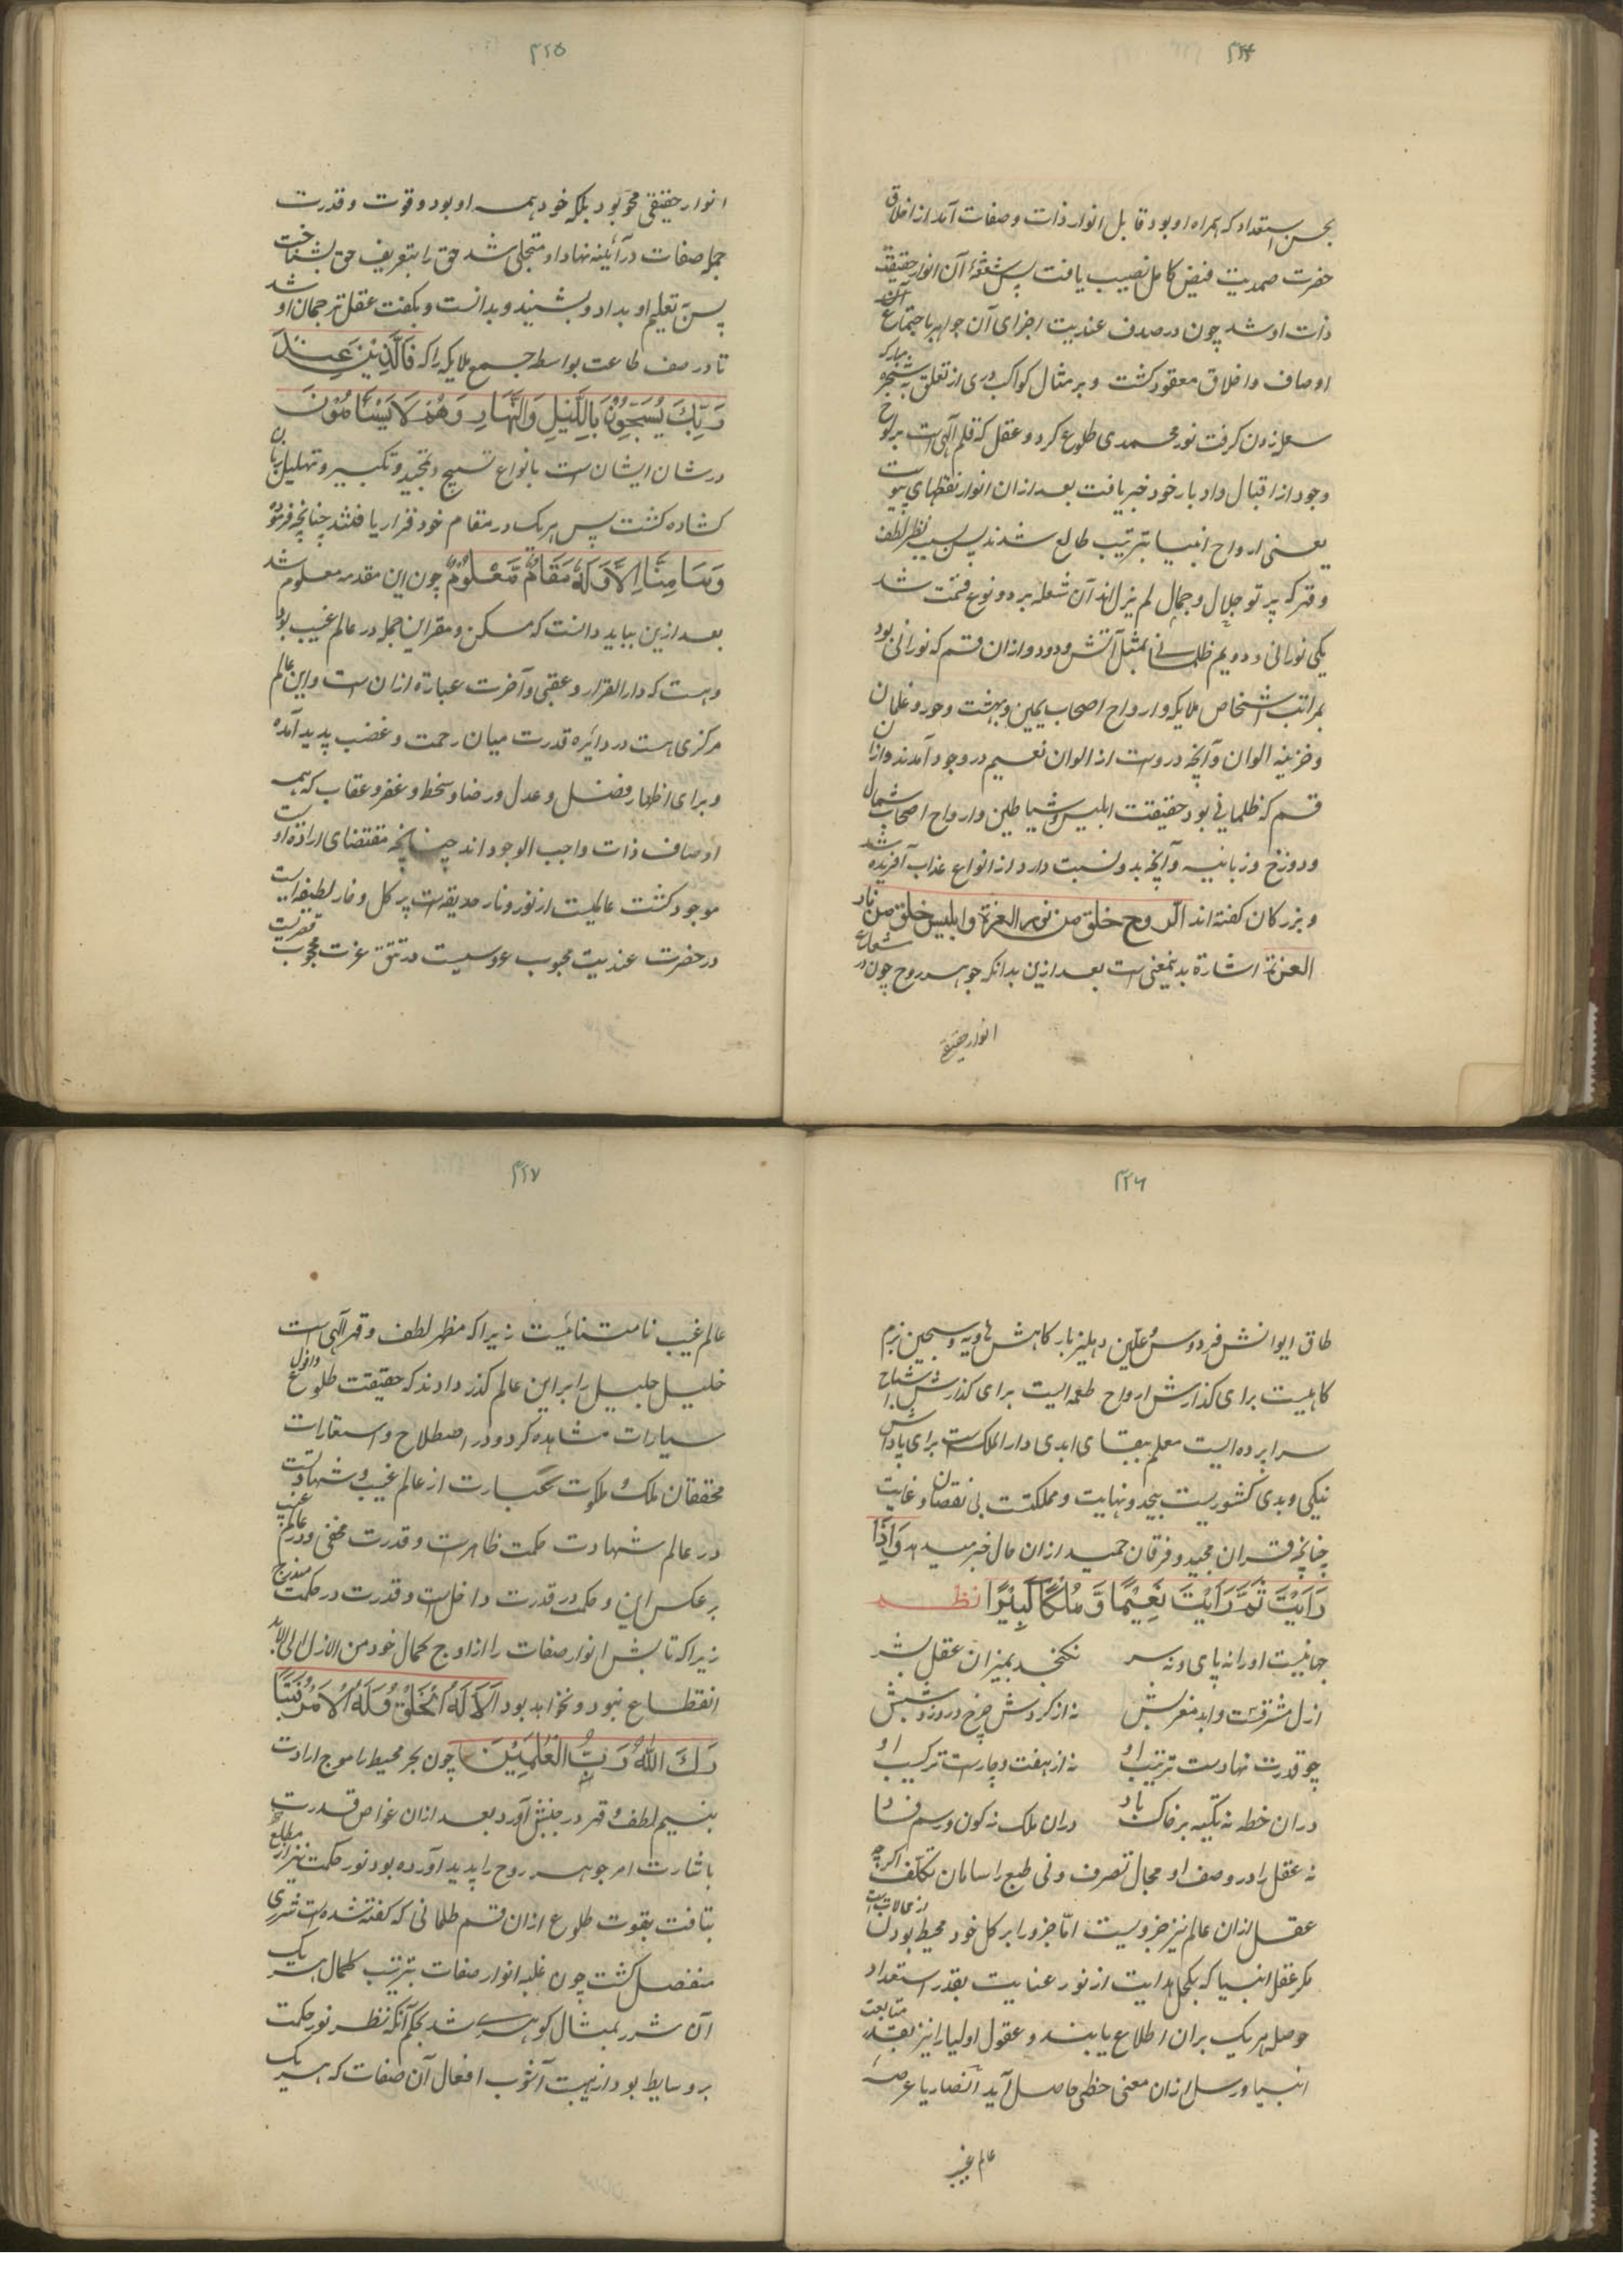 ۴۲۴
بحسن استعداد که همراه او بود قابل انوار ذات و صفات آمد از اخلاق
حضرت صمدیت فیض کامل نصیب یافت پس شعشعهٔ آن انوار حقیقت
ذات او شد چون در صدف عندیت اجزای آن جواهر باجتماع آن
اوصاف و اخلاق معقود کشت و بر مثال کواکب دری از تعلق بشجره مبارکه
شعله زدن کرفت نور محمدی طلوع کرد و عقل که قلم آلهی است بر لوح
وجود از اقبال و ادبار خود خبر یافت بعد از ان انوار نقطهای نبوت
یعنی ارواح انبیا بترتیب طالع شدند پس بسبب نظر لطف
و قهر که پرتو جلال و جمال لم یزل اند آن شعله بر دو نوع قسمت شد
یکی نورانی و دویم ظلمانی بمثل آتش و دود و از ان قسم که نورانی بود
بمراتب اشخاص ملایکه و ارواح اصحاب یمین و بهشت و حور و غلمان
و خزینه الوان و آنچه دروست از الوان نعیم در وجود آمدند و از ان
قسم که ظلمانی بود حقیقت ابلیس و شیاطین و ارواح اصحاب شمال
و دوزخ و زبانیه و آنچه بدو نسبت دارد از انواع عذاب آفریده شد
و بزرکان کفته اند الروح خلق من نور العزة و ابلیس خلق من نار
العزة اشارة بدینمعنی است بعد ازین بدانکه جوهر روح چون در شعاع
انوار حقیقی
۴۲۵
انوار حقیقی محو بود بلکه خود همه او بود و قوت و قدرت
جمله صفات در آئینه نهاد او متجلی شد حق را بتعریف حق بشناخت
پس تعلیم او بداد و بشنید و بدانست و بکفت عقل ترجمان او شد
تا در صف طاعت بواسطه جمع ملایکه را که فَالَّذِیْنَ عِنْدَ
رَبِّكَ یُسَبِّحُوْنَ بِالَّلیْلِ وَالنَّهَارِ وَهُمْ لَا یَسْئَامُوْنَ
در شان ایشان است بانواع تسبیح و تمجید و تکبیر و تهلیل زبان
کشاده کشت پس هر یک در مقام خود قرار یافتند چنانچه فرموده
وَمَا مِنَّا اِلَّا وَلَهُ مَقَامٌ مَّعْلُوْمٌ چون این مقدمه معلوم شد
بعد ازین بباید دانست که مسکن و مقر این جمله در عالم غیب بود
و هست که دار القرار و عقبی و آخرت عبارة از ان است و این عالم
مرکزی است در دائره قدرت میان رحمت و غضب پدید آمده
و برای اظهار فضل و عدل و رضا و سخط و غفر و عقاب که همه
اوصاف ذات واجب الوجود اند چنانچه مقتضای ارادة اوست
موجود کشت عالمیست از نور و نار حدیقه است پر کل و خار لطیفه ایست
در حضرت عندیت محبوب عروسیست در تتق عزت محجوب قصریست
۴۲۶
طاق ایوانش فردوس و علیین دهلیز بارکاهش هاویه و سجین بزم
کاهیست برای کذارش ارواح طعمه ایست برای کذارش اشباح
سراپرده ایست معلم ببقای ابدی دار الملک است برای پاداش
نیکی و بدی کشوریست بیحد و نهایت و مملکتست بی نقصان و غایت
چنانچه قران مجید و فرقان حمید از ان حال خبر میدهد وَاِذَا
رَاَیْتَ ثَمَّ رَاَیْتَ نَعِیْمًا وَّ مُلْكًا كَبِیْرًا نظم
جهانیست او را نه پای و نه سر نکنجد بمیزان عقل بشر
ازل مشرقست و ابد مغربش نه از کردش چرخ در روز و شبش
چو قدرت نهادست ترتیب او نه از هفت و چارست ترکیب او
در ان خطه نه تکیه بر خاک باد در ان ملک نه کون و رسم فساد
نه عقل را در وصف او مجال تصرف و نی طبع را سامان تکلف اکرچه
عقل از ان عالم نیز جزویست اما جزو را بر کل خود محیط بودن از محالاتست
مکر عقل انبیا که بکحل هدایت از نور عنایت بقدر استعداد
حوصله هر یک بران اطلاع یابند و عقول اولیا را نیز بقدر متابعت
انبیا و رسل از ان معنی حظی حاصل آید انصار یا عرصهٔ
عالم غیب
۴۲۷
عالم غیب نامتناهیست زیرا که مظهر لطف و قهر آلهی است
خلیل جلیل را برین عالم کذر دادند که حقیقت طلوع و افول
سیارات مشاهده کرد و در اصطلاح و استعارات
محققان ملک و ملکوت عبارت از عالم غیب و شهادتست
در عالم شهادت حکمت ظاهرست و قدرت مخفی و در عالم غیب
بر عکس این و حکمت در قدرت داخل است و قدرت در حکمت مندرج
زیرا که تابش انوار صفات را از اوج کمال خود من الازل الی الابد
انقطاع نبود و نخواهد بود اَلَا لَهُ الْخَلْقُ وَلَهُ الْاَمْرُ فَتَبَا
رَكَ اللهُ رَبُّ الْعٰلَمِیْنَ چون بحر محیط را موج ارادت
بنسیم لطف و قهر در جنبش آورد بعد از ان غواص قدرت
باشارت امر جوهر روح را پدید آورده بود نور حکمت نیز از مطلع
بتافت بقوت طلوع از ان قسم ظلمانی که کفته شده است شرری
منفصل کشت چون غلبه انوار صفات بترتیب کمال هر یک
آن شرر بمثال کوهری شد بحکم آنکه نظر نور حکمت
بر وسایط بود از هیبت آشوب افعال آن صفات که هر یک